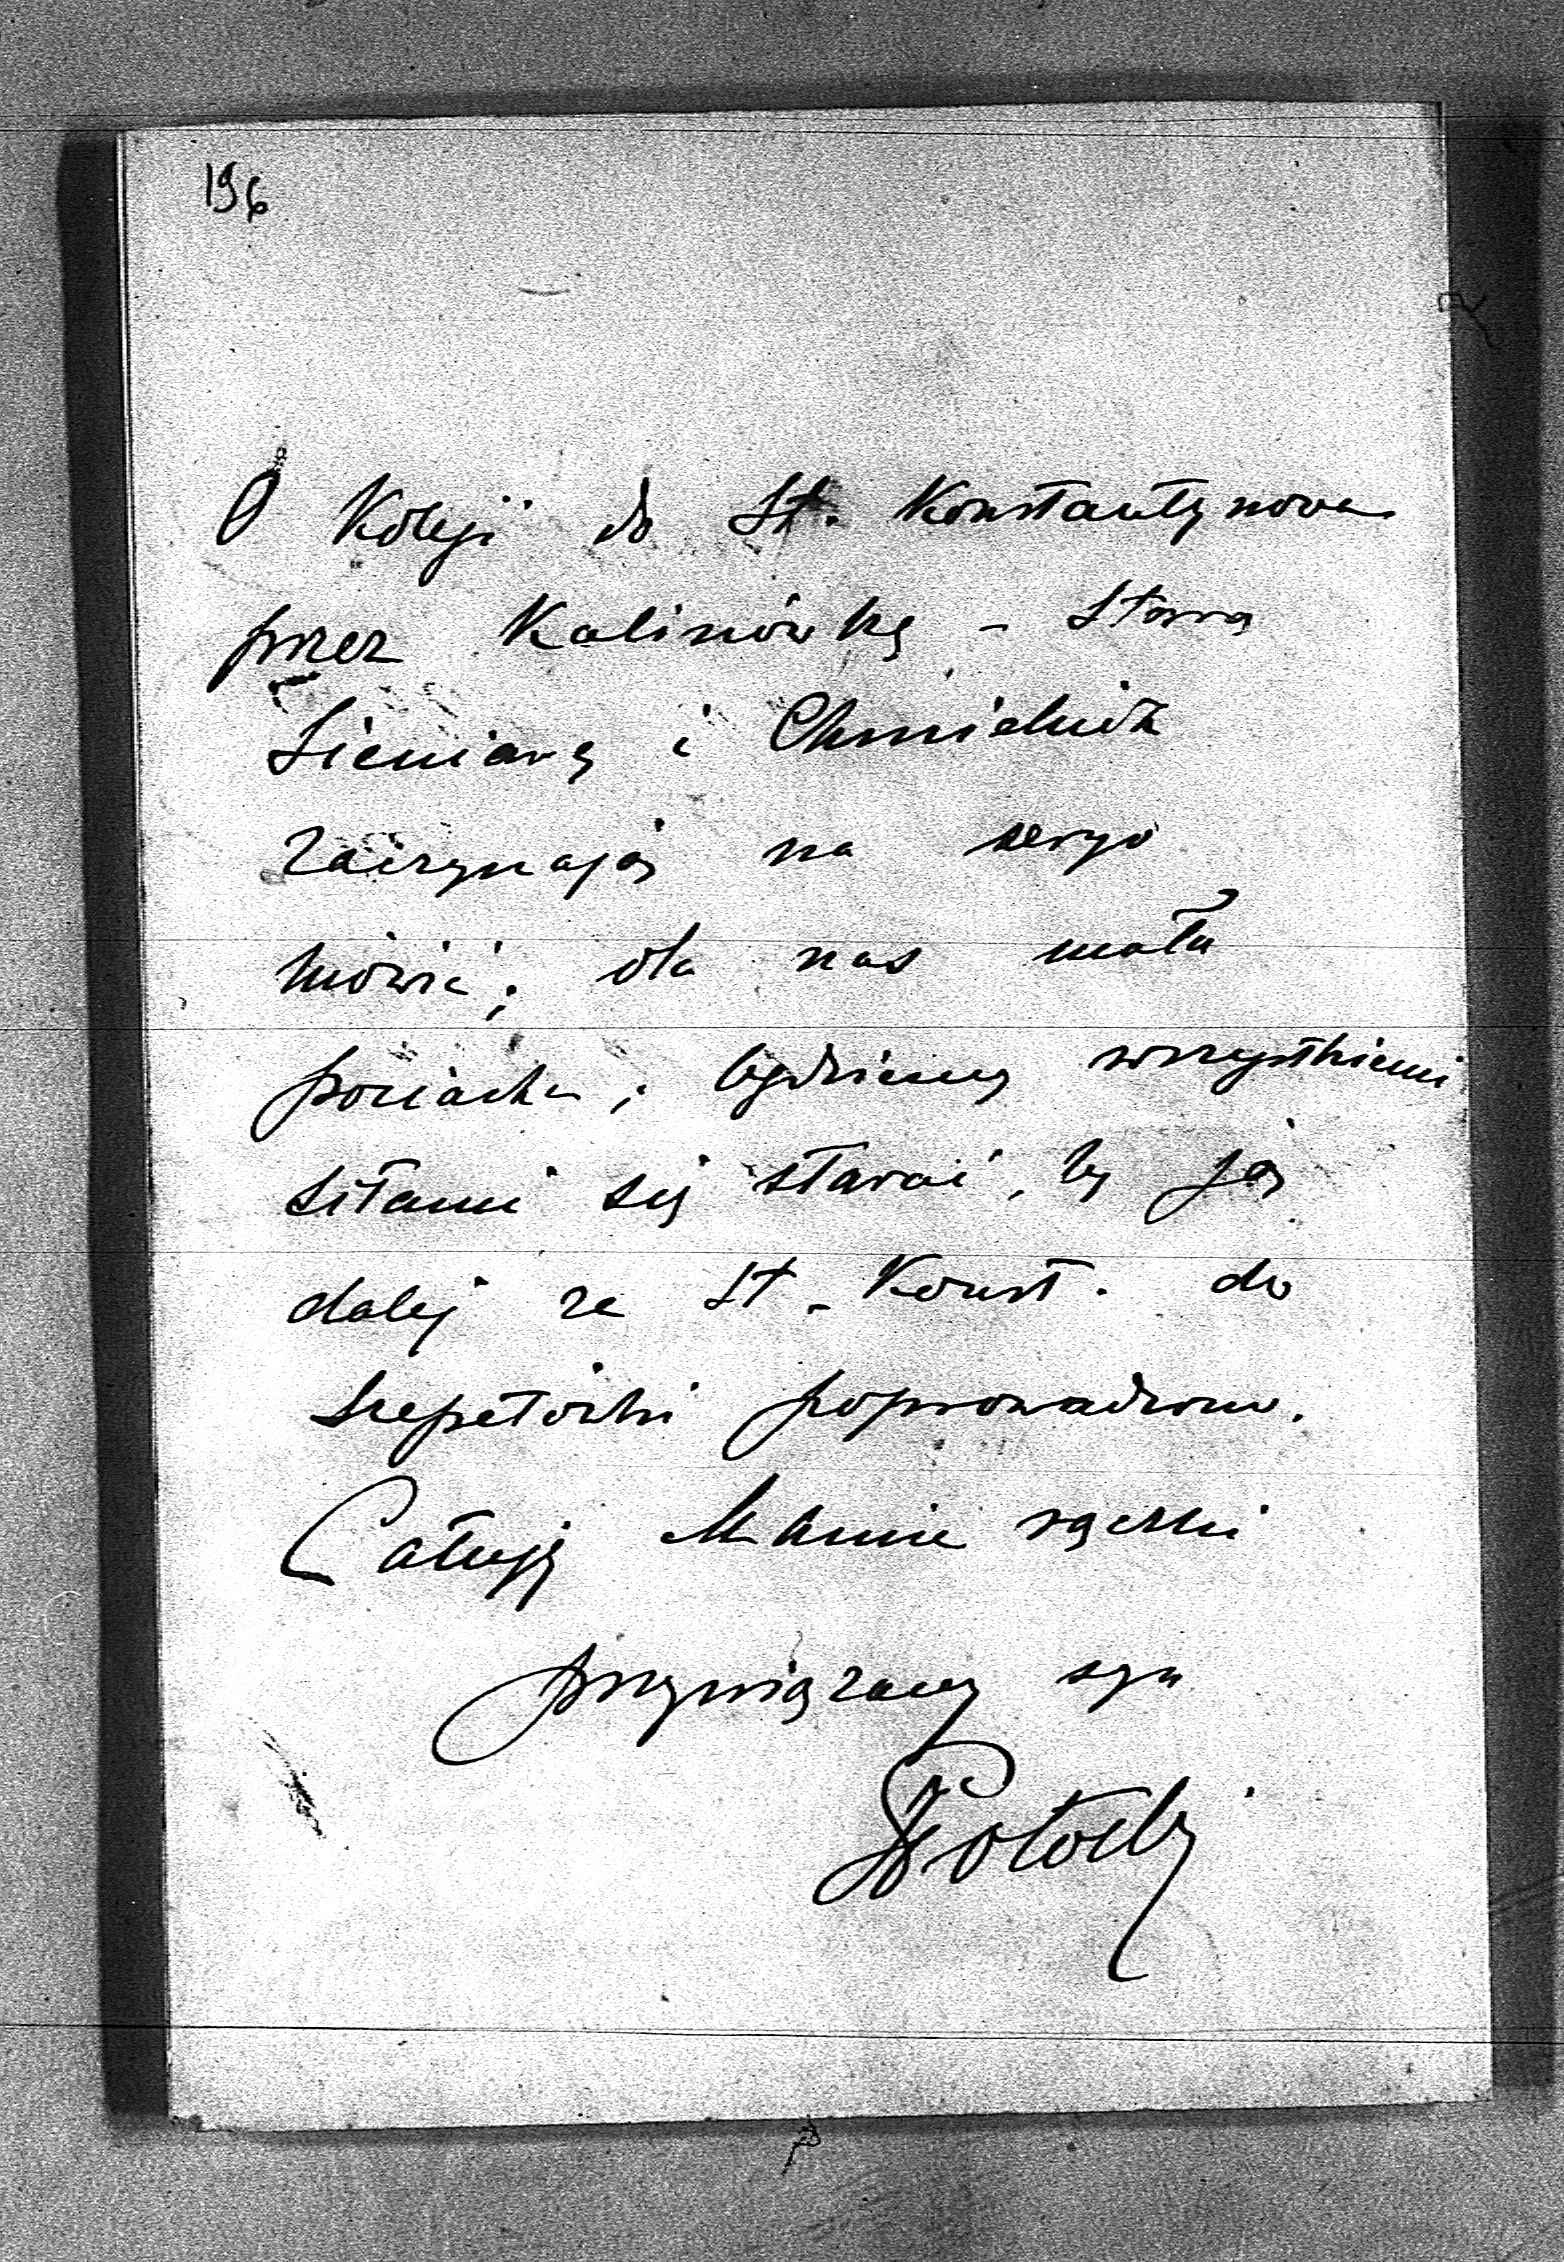 196
O Koleji do St. Konstantynowa
przez Kalinówkę - Starą
Sieniawę i Chmielnik
zaczynają na seryo
mówić; dla nas mała
pociecha; będziemy wszystkiemi
siłami się starać, by ją
dalej ze St. Konst. do
Szepetówki poprowadzono.
Całuję Mamie rączki
przywiązany syn
Potocki